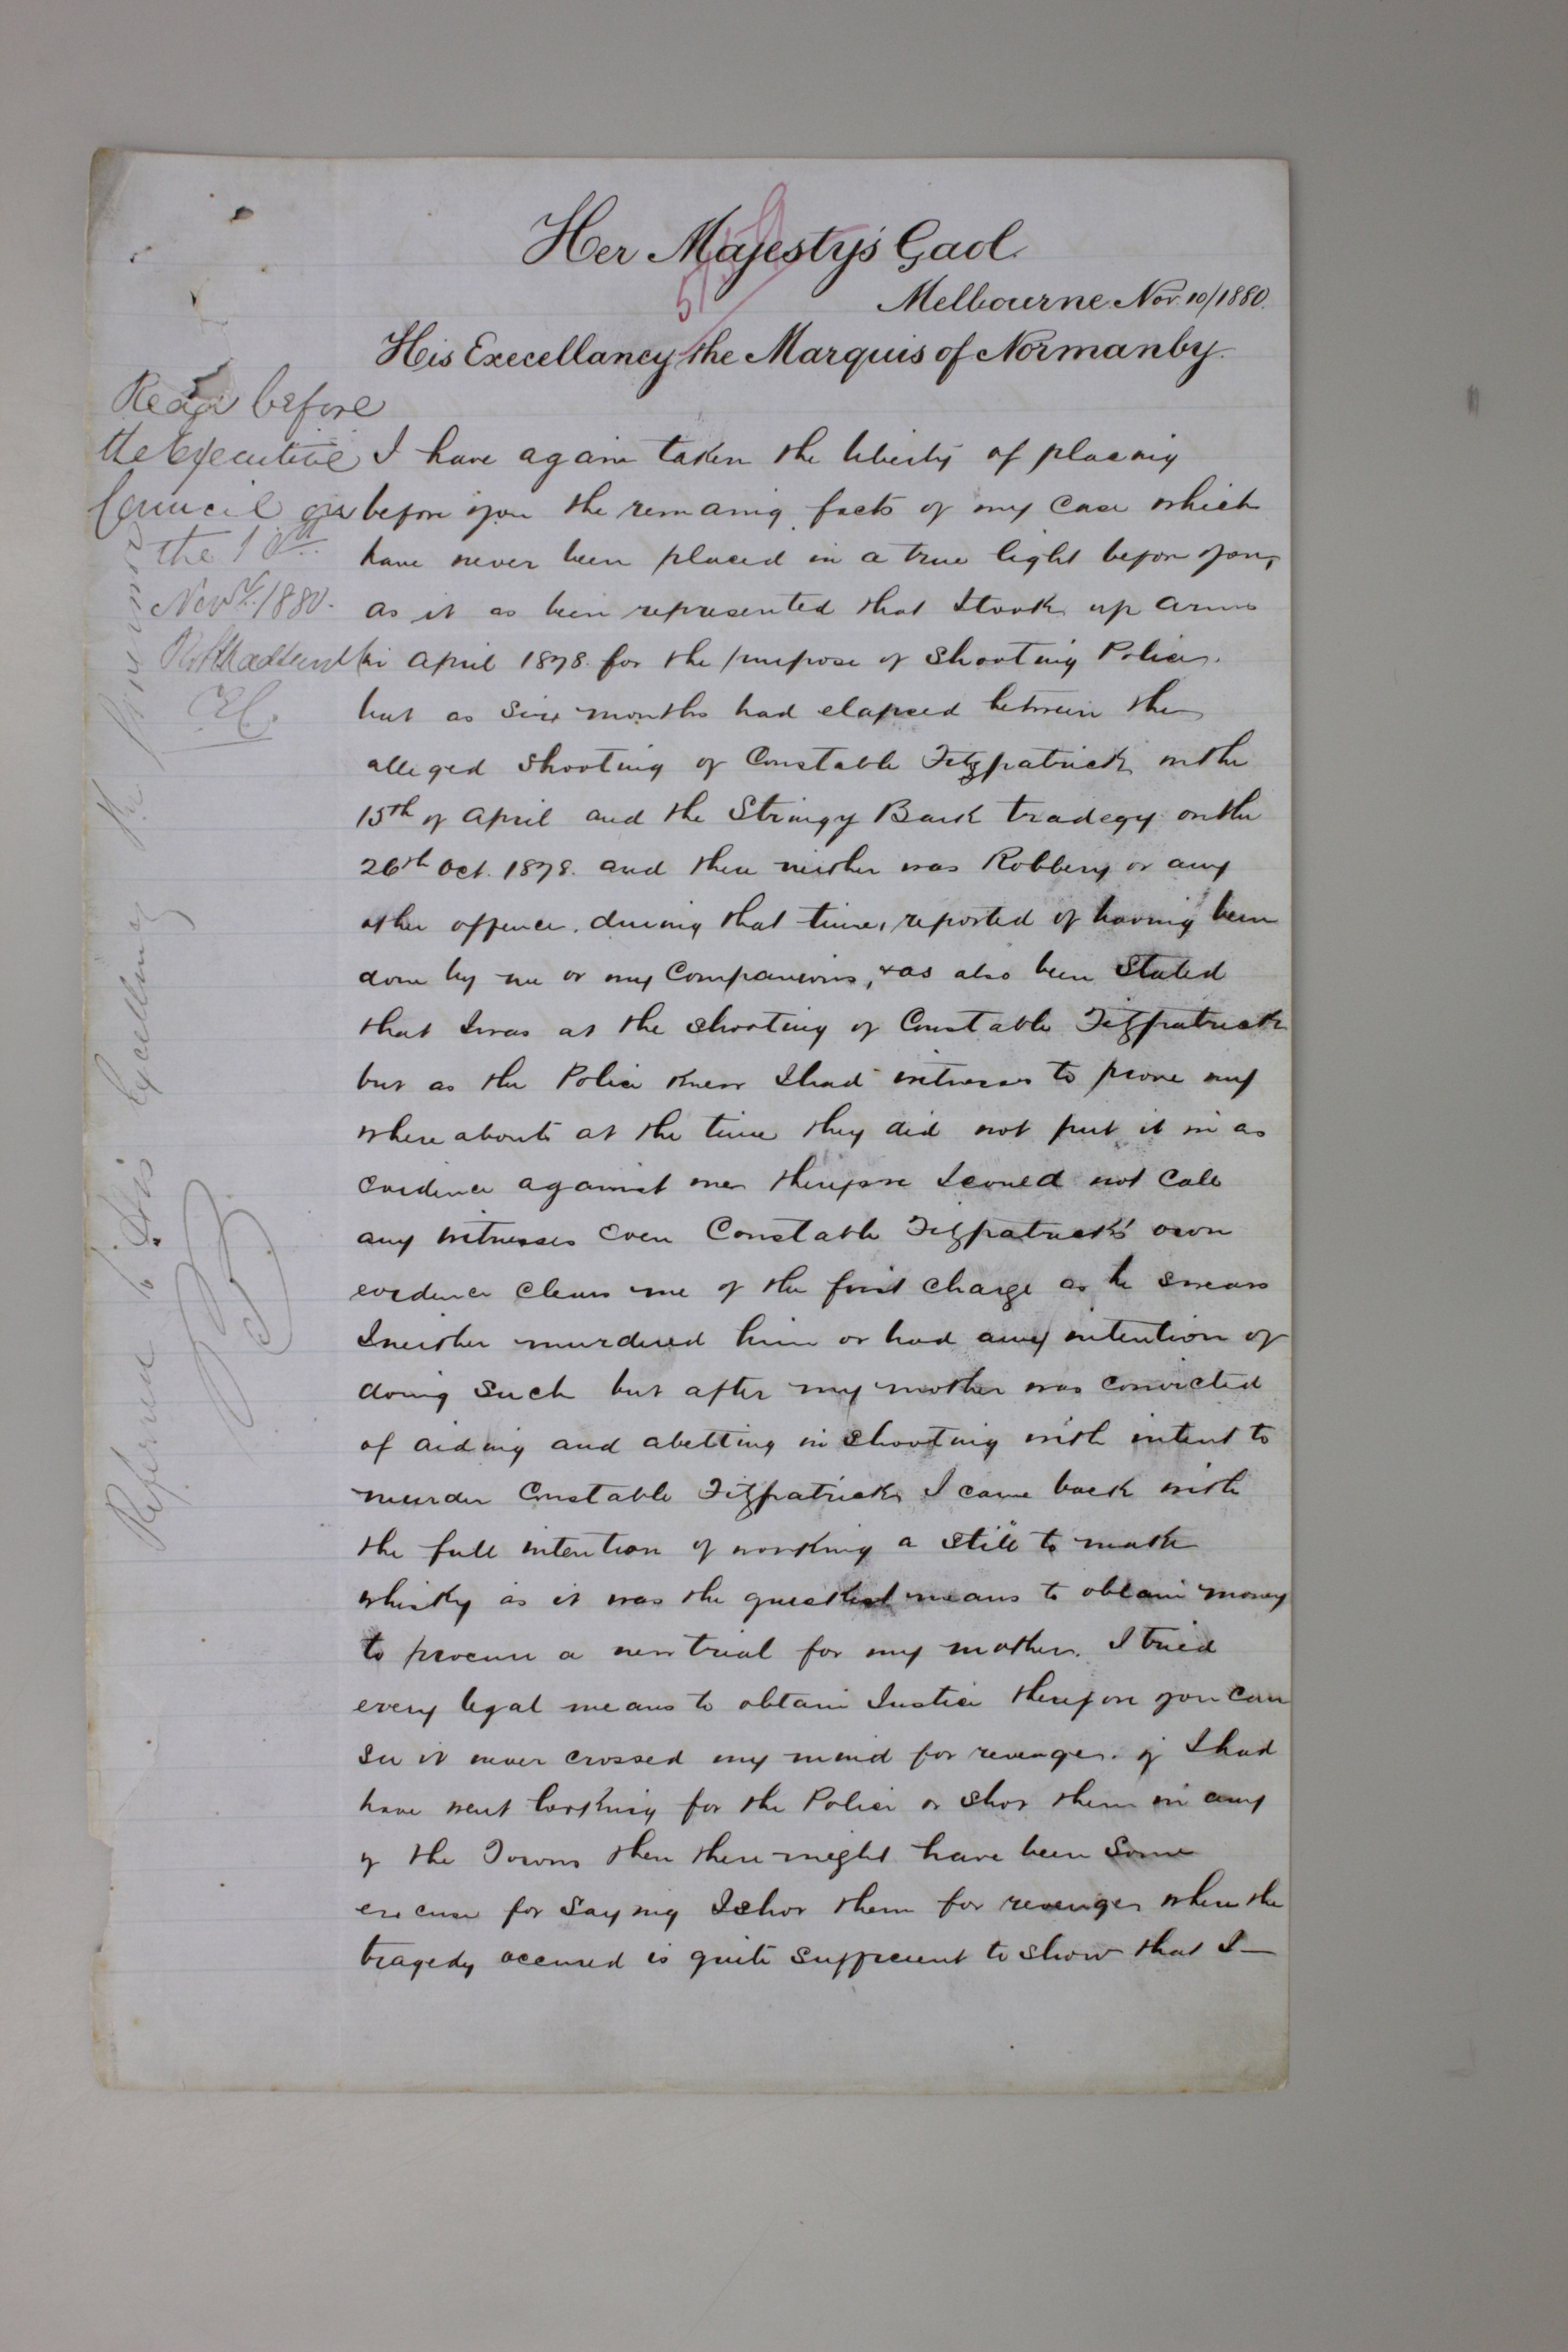 Her Majesty's Gaol.
Melbourne Nov. 10/1880.
His Execellancy the Marquis of Normanby.
Read before
the Executive
Council on
the 10th
Novr. 1880.
EC.
I have again taken the liberty of placing
before you the remaing facts of my case which
have never been placed in a true light before you,
as it as been represented that I took up arms
in April 1878. for the purpose of Shooting Police.
but as Six months had elapced between the
alleged Shooting of Constable Fitzpatrick on the
15th of April and the Stringy Bark tradegy on the
26th Oct. 1878. and there neither was Robbery or any
other offence, during that time, reported of having been
done by me or my Companions, & as also been Stated
that I was at the Shooting of Constable Fitzpatrick
but as the Police knew I had witnesses to prove my
where abouts at the time they did not put it in as
evidence against me therefore I couled not Call
any witnesses Even Constable Fitzpatrick's own
evidence clears me of the first Charge as he swears
I neither murdered him or had any intention of
doing Such but after my mother was convicted
of aiding and abetting in Shooting with intent to
murder Constable Fitzpatrick I came back with
the full intention of working a Still to make
whisky as it was the quickest means to obtain money
to procure a new trial for my mother. I tried
every legal means to obtain Justice therefore you can
See it never crossed my mind for revenge. if I had
have went looking for the Police or Shot them in any
of the Towns then there might have been Some
excuse for Saying I Shot them for revenge where the
tragedy occured is quite Suffecient to Show that I
Referred to His Excellency the Governor